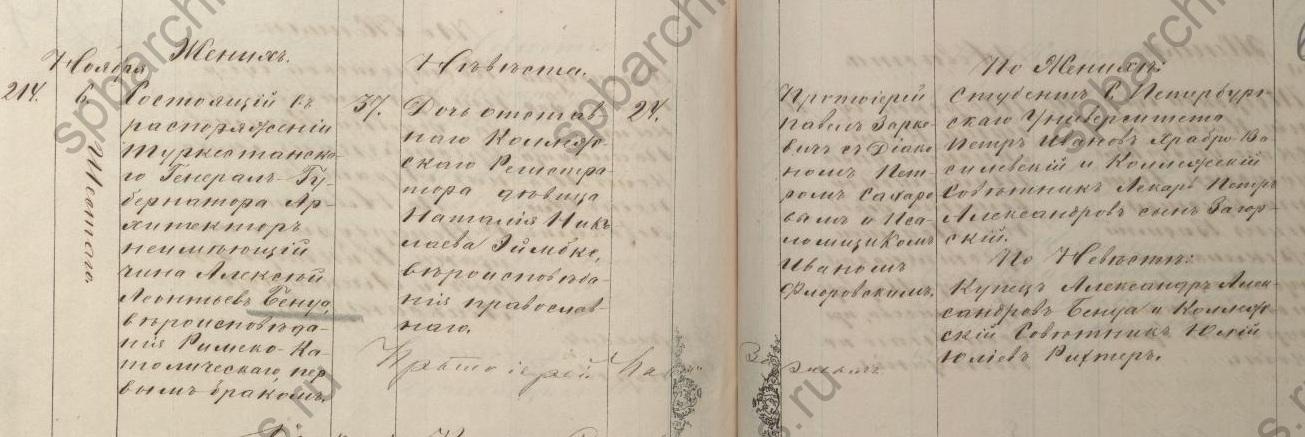 Ноября
214.
6.
Шестаго.
Женихъ.
Состоящій въ
распоряженіи
Туркестанска-
го Генералъ-Гу-
бернатора Ар-
хитекторъ
неимѣющій
чина Алексѣй
Леонтьевъ Бенуа,
вѣроисповѣда-
нія Римско-Ка-
толическаго, пер
вымъ бракомъ.
37.
Невѣста.
Дочь отстав
наго Коллеж-
скаго Регистра
тора дѣвица
Наталія Нико
лаева Эймбке,
вѣроисповѣда-
нія православ-
наго.
24.
Протоіерей
Протоіерей
Павелъ Зарке-
вичъ съ Діако-
номъ Пет-
ромъ Сахаро
вымъ и Пса-
ломщикомъ
Иваномъ
Флоровскимъ.
По Женихѣ:
Студентъ С. Петербург-
скаго Университета
Петръ Ивановъ Храбро-Ва-
силевскій и Коллежскій
Совѣтникъ Лекарь Петръ
Александровъ сынъ Загор-
скій.
По Невѣстѣ:
Купецъ Александръ Алек-
сандровъ Бенуа и Коллеж-
скій Совѣтникъ Юлій
Юліевъ Рихтеръ.